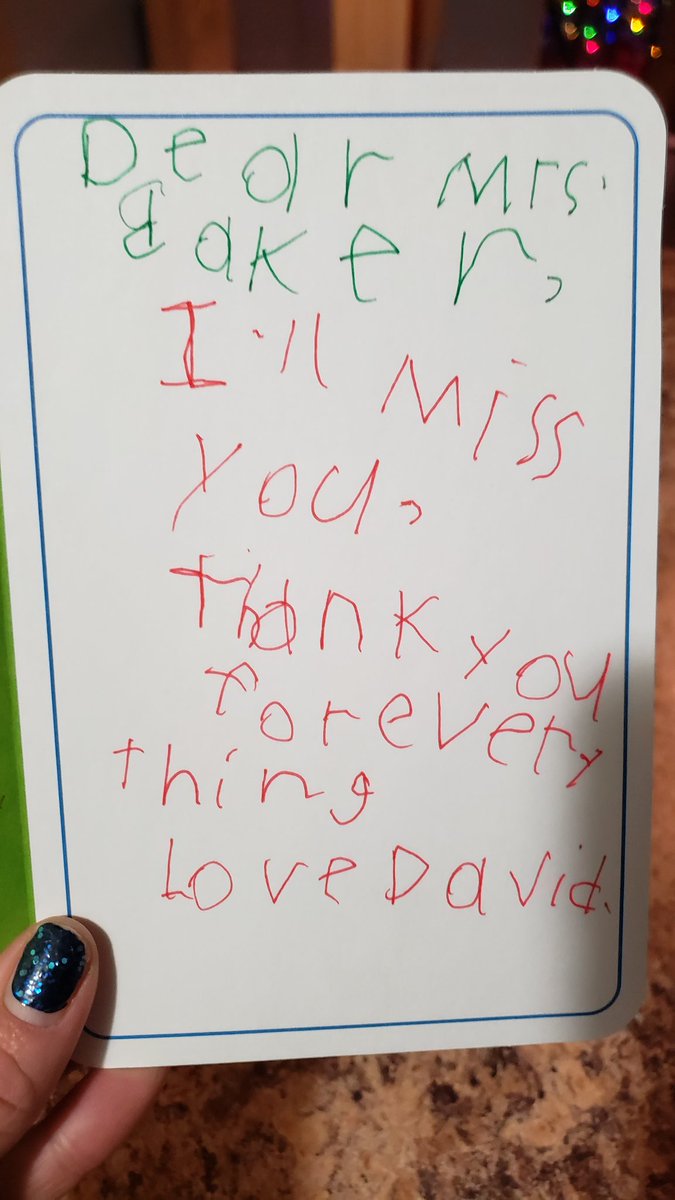 Dear Mrs.
Baker,
I'll Miss
you,
thank you
for every
thing
Love David.